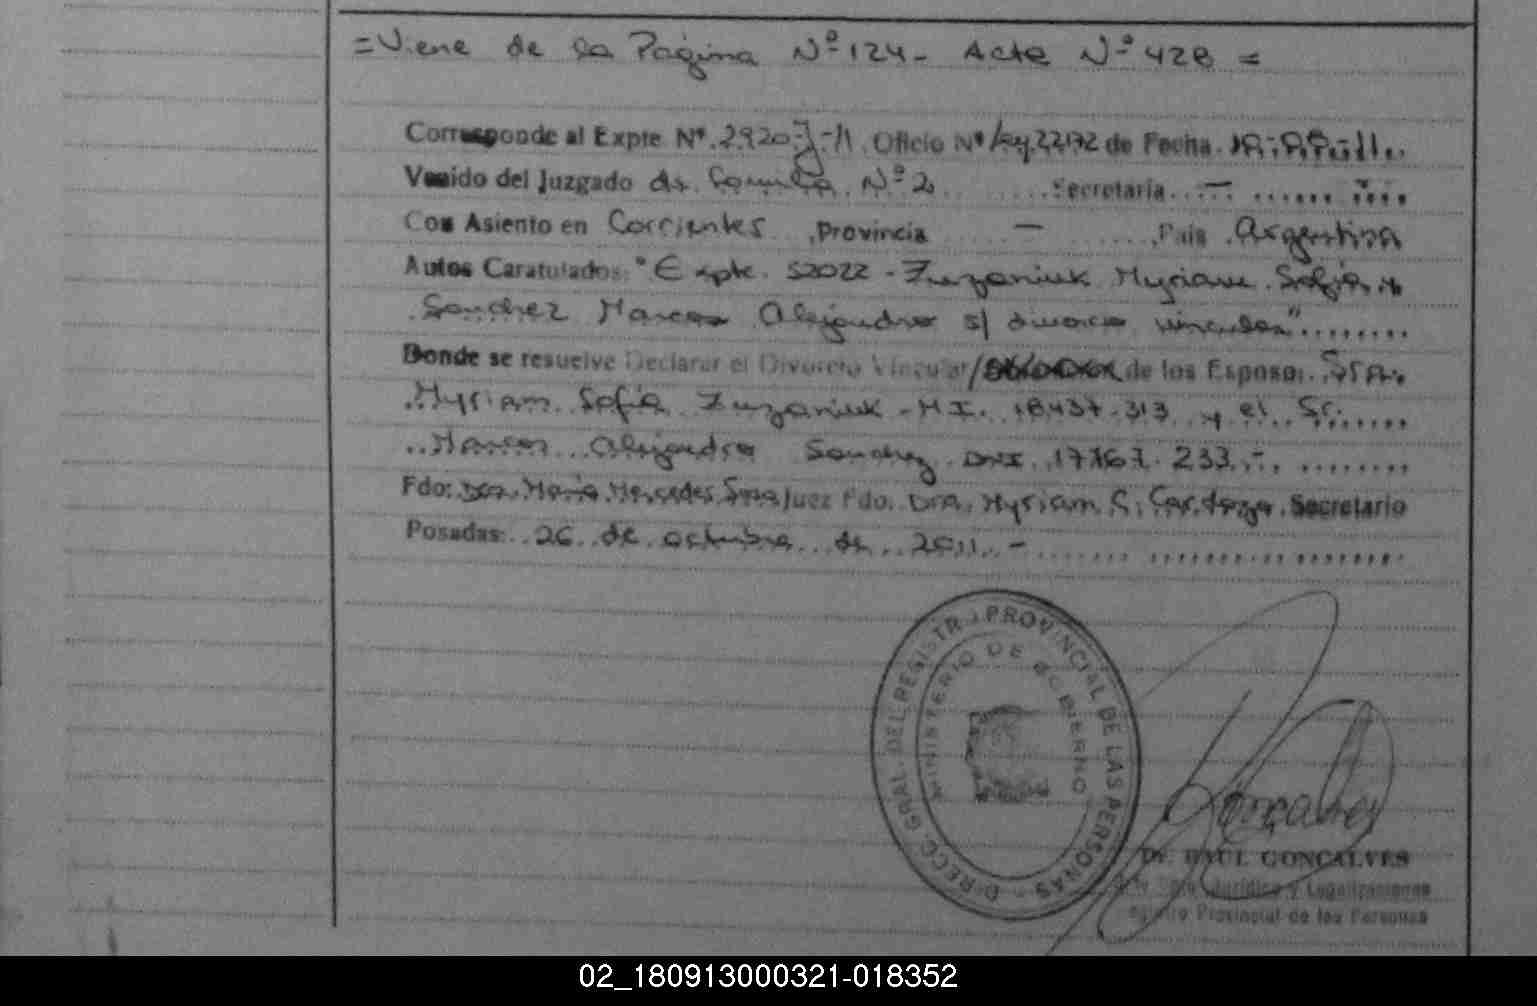 = Viene de la Página Nº 124 - Acta Nº 428 =
Corresponde al Expte Nº 2920-J-11 Oficio Nº /Ey.22172 de Fecha
Venido del Juzgado de Familia Nº 2 Secretaría —
Con Asiento en Corrientes, Provincia — , País Argentina
Autos Caratulados: "Expte. 52022 - Zuzaniuk Myriam Sofía y
Sanchez Marcos Alejandro s/ divorcio vincular"
Donde se resuelve Declarar el Divorcio Vincular/ de los Esposos: Sra.
Myriam Sofía Zuzaniuk - M I. 18.437.313 y el Sr.
Marcos Alejandro Sanchez DNI 17.767.233.-
Fdo: Dra. María Mercedes Sosa Juez Fdo. Dra. Myriam C. Cardozo Secretario
Posadas: 26 de octubre de 2011.-
DIRECC. GRAL. DEL REGISTRO PROVINCIAL DE LAS PERSONAS -
MINISTERIO DE GOBIERNO
Dr. RAUL GONCALVES
Jurídica y Legalizaciones
Registro Provincial de las Personas
02_180913000321-018352